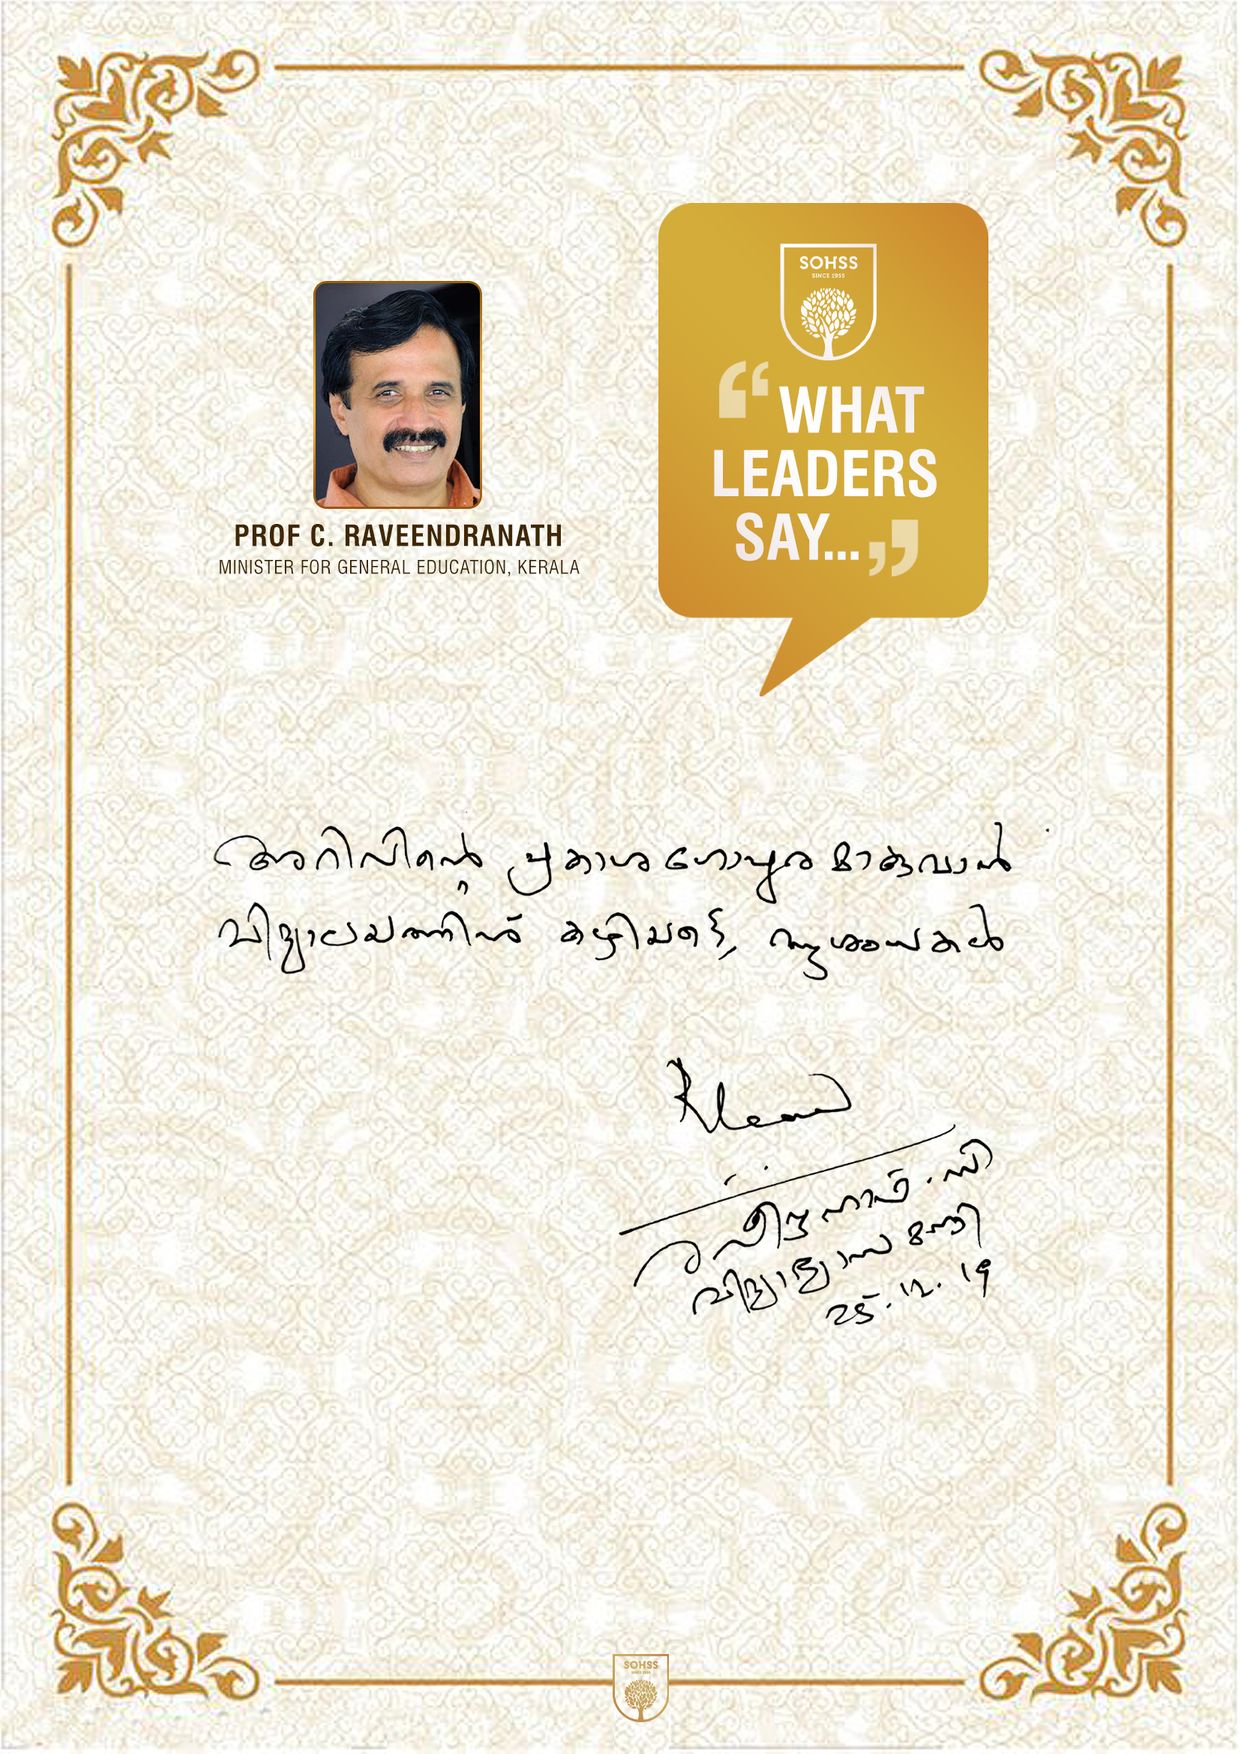 SOHSS
SINCE 1955
“WHAT
LEADERS
SAY...”
PROF C. RAVEENDRANATH
MINISTER FOR GENERAL EDUCATION, KERALA
അറിവിന്റെ പ്രകാശ ഗോപുരമാകുവാൻ
വിദ്യാലയത്തിന് കഴിയട്ടെ, സ്നേഹാശംസകൾ
രവീന്ദ്രനാഥ്. സി
വിദ്യാഭ്യാസ മന്ത്രി
25.12.19
SOHSS
SINCE 1955